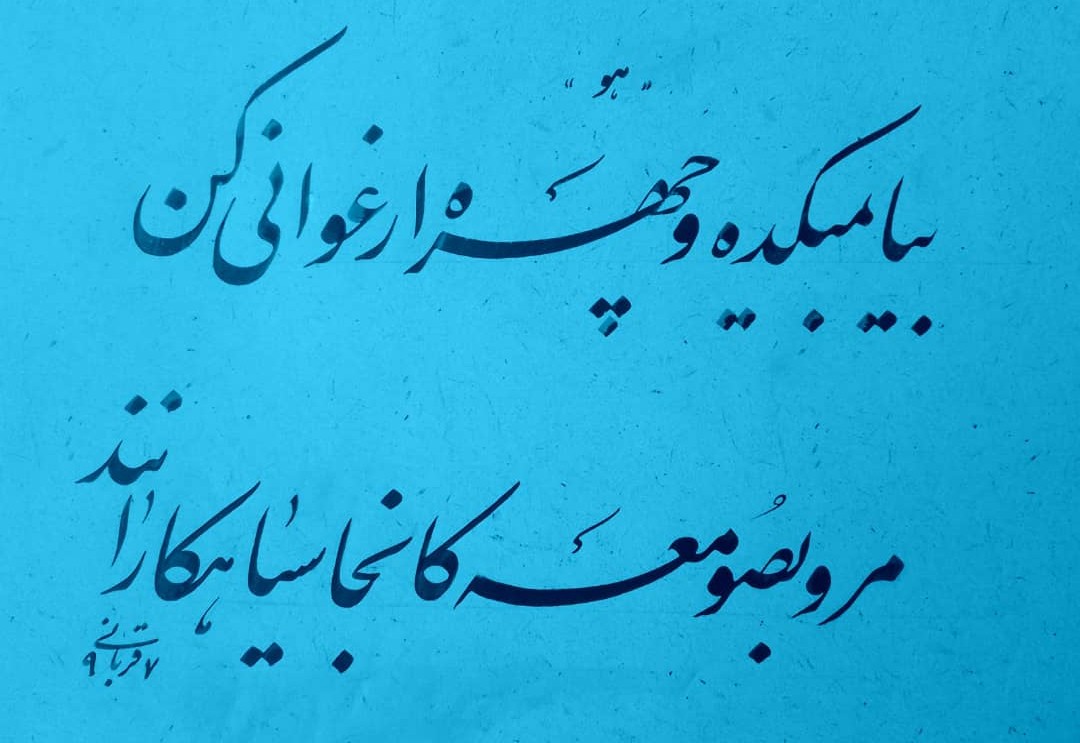 "هو"
بیا بمیکده و چهره ارغوانی کن
مرو بصومعه کانجا سیاهکارانند
قربانی ۹۷